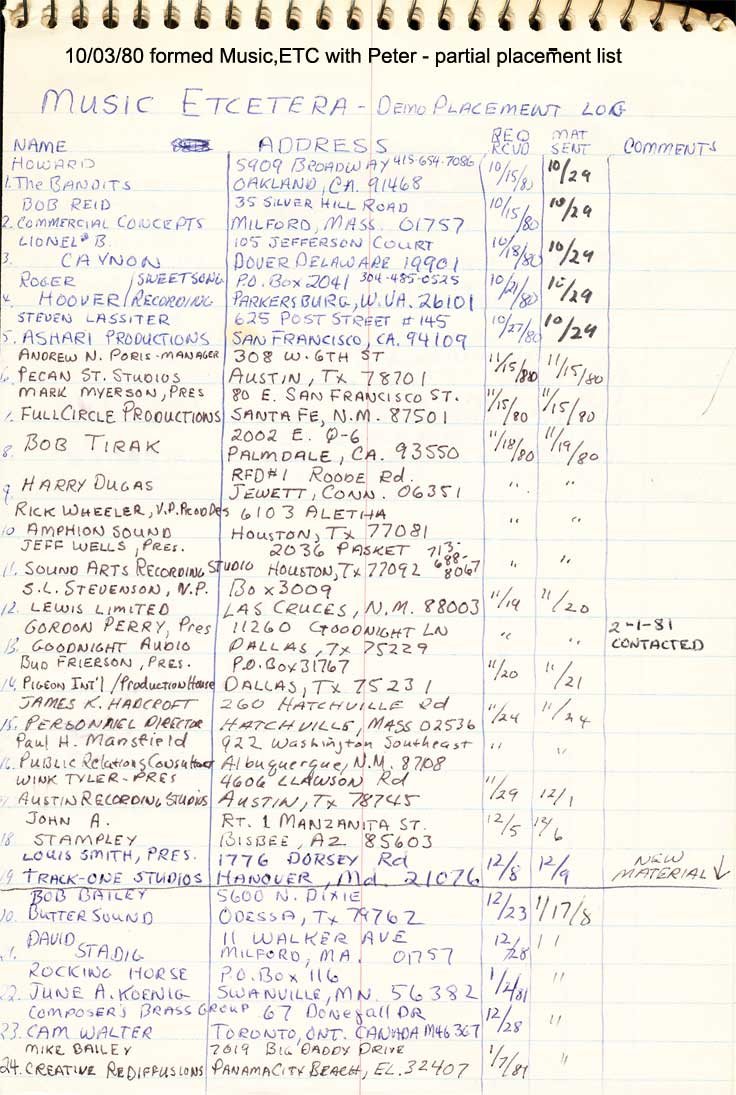 10/03/80 formed Music,ETC with Peter - partial placement list
MUSIC ETCETERA - DEMO PLACEMENT LOG
NAME ADDRESS REQ RCVD MAT SENT COMMENTS
HOWARD 5909 BROADWAY 415-654-7086 10/15/80 10/29
1. The BANDITS OAKLAND, CA. 91468
BOB REID 35 SILVER HILL ROAD 10/15/80 10/29
2. COMMERCIAL CONCEPTS MILFORD, MASS. 01757
LIONEL B. 105 JEFFERSON COURT 10/18/80 10/29
3. CAYNON DOVER DELAWARE 19901
ROGER / SWEETSONG P.O. Box 2041 304-485-0525 10/21/80 10/29
4. HOOVER / RECORDING PARKERSBURG, W.VA. 26101
STEVEN LASSITER 625 POST STREET #145 10/27/80 10/29
5. ASHARI PRODUCTIONS SAN FRANCISCO, CA. 94109
ANDREW N. PORIS - MANAGER 308 W. 6TH ST 11/15/80 11/15/80
6. PECAN ST. STUDIOS AUSTIN, Tx 78701
MARK MYERSON, PRES 80 E. SAN FRANCISCO ST. 11/15/80 11/15/80
7. FULLCIRCLE PRODUCTIONS SANTA FE, N.M. 87501
8. BOB TIRAK 2002 E. Q-6 11/18/80 11/19/80
PALMDALE, CA. 93550
9. HARRY DUGAS RFD#1 ROODE Rd. " "
JEWETT, CONN. 06351
RICK WHEELER, V.P. PRODDES 6103 ALETHA " "
10 AMPHION SOUND HOUSTON, Tx 77081
JEFF WELLS, PRES. 2036 PASKET 713-688-8067 " "
11. SOUND ARTS RECORDING STUDIO HOUSTON, Tx 77092
S.L. STEVENSON, V.P. Box 3009 11/19 11/20
12. LEWIS LIMITED LAS CRUCES, N.M. 88003
GORDON PERRY, Pres 11260 GOODNIGHT LN " " 2-1-81
13. GOODNIGHT AUDIO DALLAS, Tx 75229 CONTACTED
BUD FRIERSON, PRES. P.O. Box 31767 11/20 11/21
14. PIGEON INT'L / Production House DALLAS, Tx 75231
JAMES K. HADCROFT 260 HATCHVILLE Rd 11/24 11/24
15. PERSONNEL DIRECTOR HATCHVILLE, MASS 02536
Paul H. Mansfield 922 Washington Southeast " "
16. PUBLIC Relations Consultant Albuquerque, N.M. 87108
WINK TYLER - PRES 4606 CLAWSON Rd 11/29 12/1
17. AUSTIN RECORDING STUDIOS AUSTIN, Tx 78745
JOHN A. RT. 1 MANZANITA ST. 12/5 12/6
18. STAMPLEY BISBEE, AZ 85603
LOUIS SMITH, PRES. 1776 DORSEY Rd 12/8 12/9 NEW
19 TRACK-ONE STUDIOS HANOVER, Md. 21076 MATERIAL ↓
BOB BAILEY 5600 N. DIXIE 12/23 1/17/8
20. BUTTER SOUND ODESSA, Tx 79762
DAVID 11 WALKER AVE 12/28 "
21. STADIG MILFORD, MA. 01757
ROCKING HORSE P.O. Box 116 1/2/81 "
22. JUNE A. KOENIG SWANVILLE, MN. 56382
COMPOSER'S BRASS GROUP 67 Donegall DR 12/28 "
23. CAM WALTER TORONTO, ONT. CANADA M4G 3G7
MIKE BAILEY 7019 BIG DADDY DRIVE 1/7/81 "
24. CREATIVE REDIFFUSIONS PANAMA CITY BEACH, FL. 32407